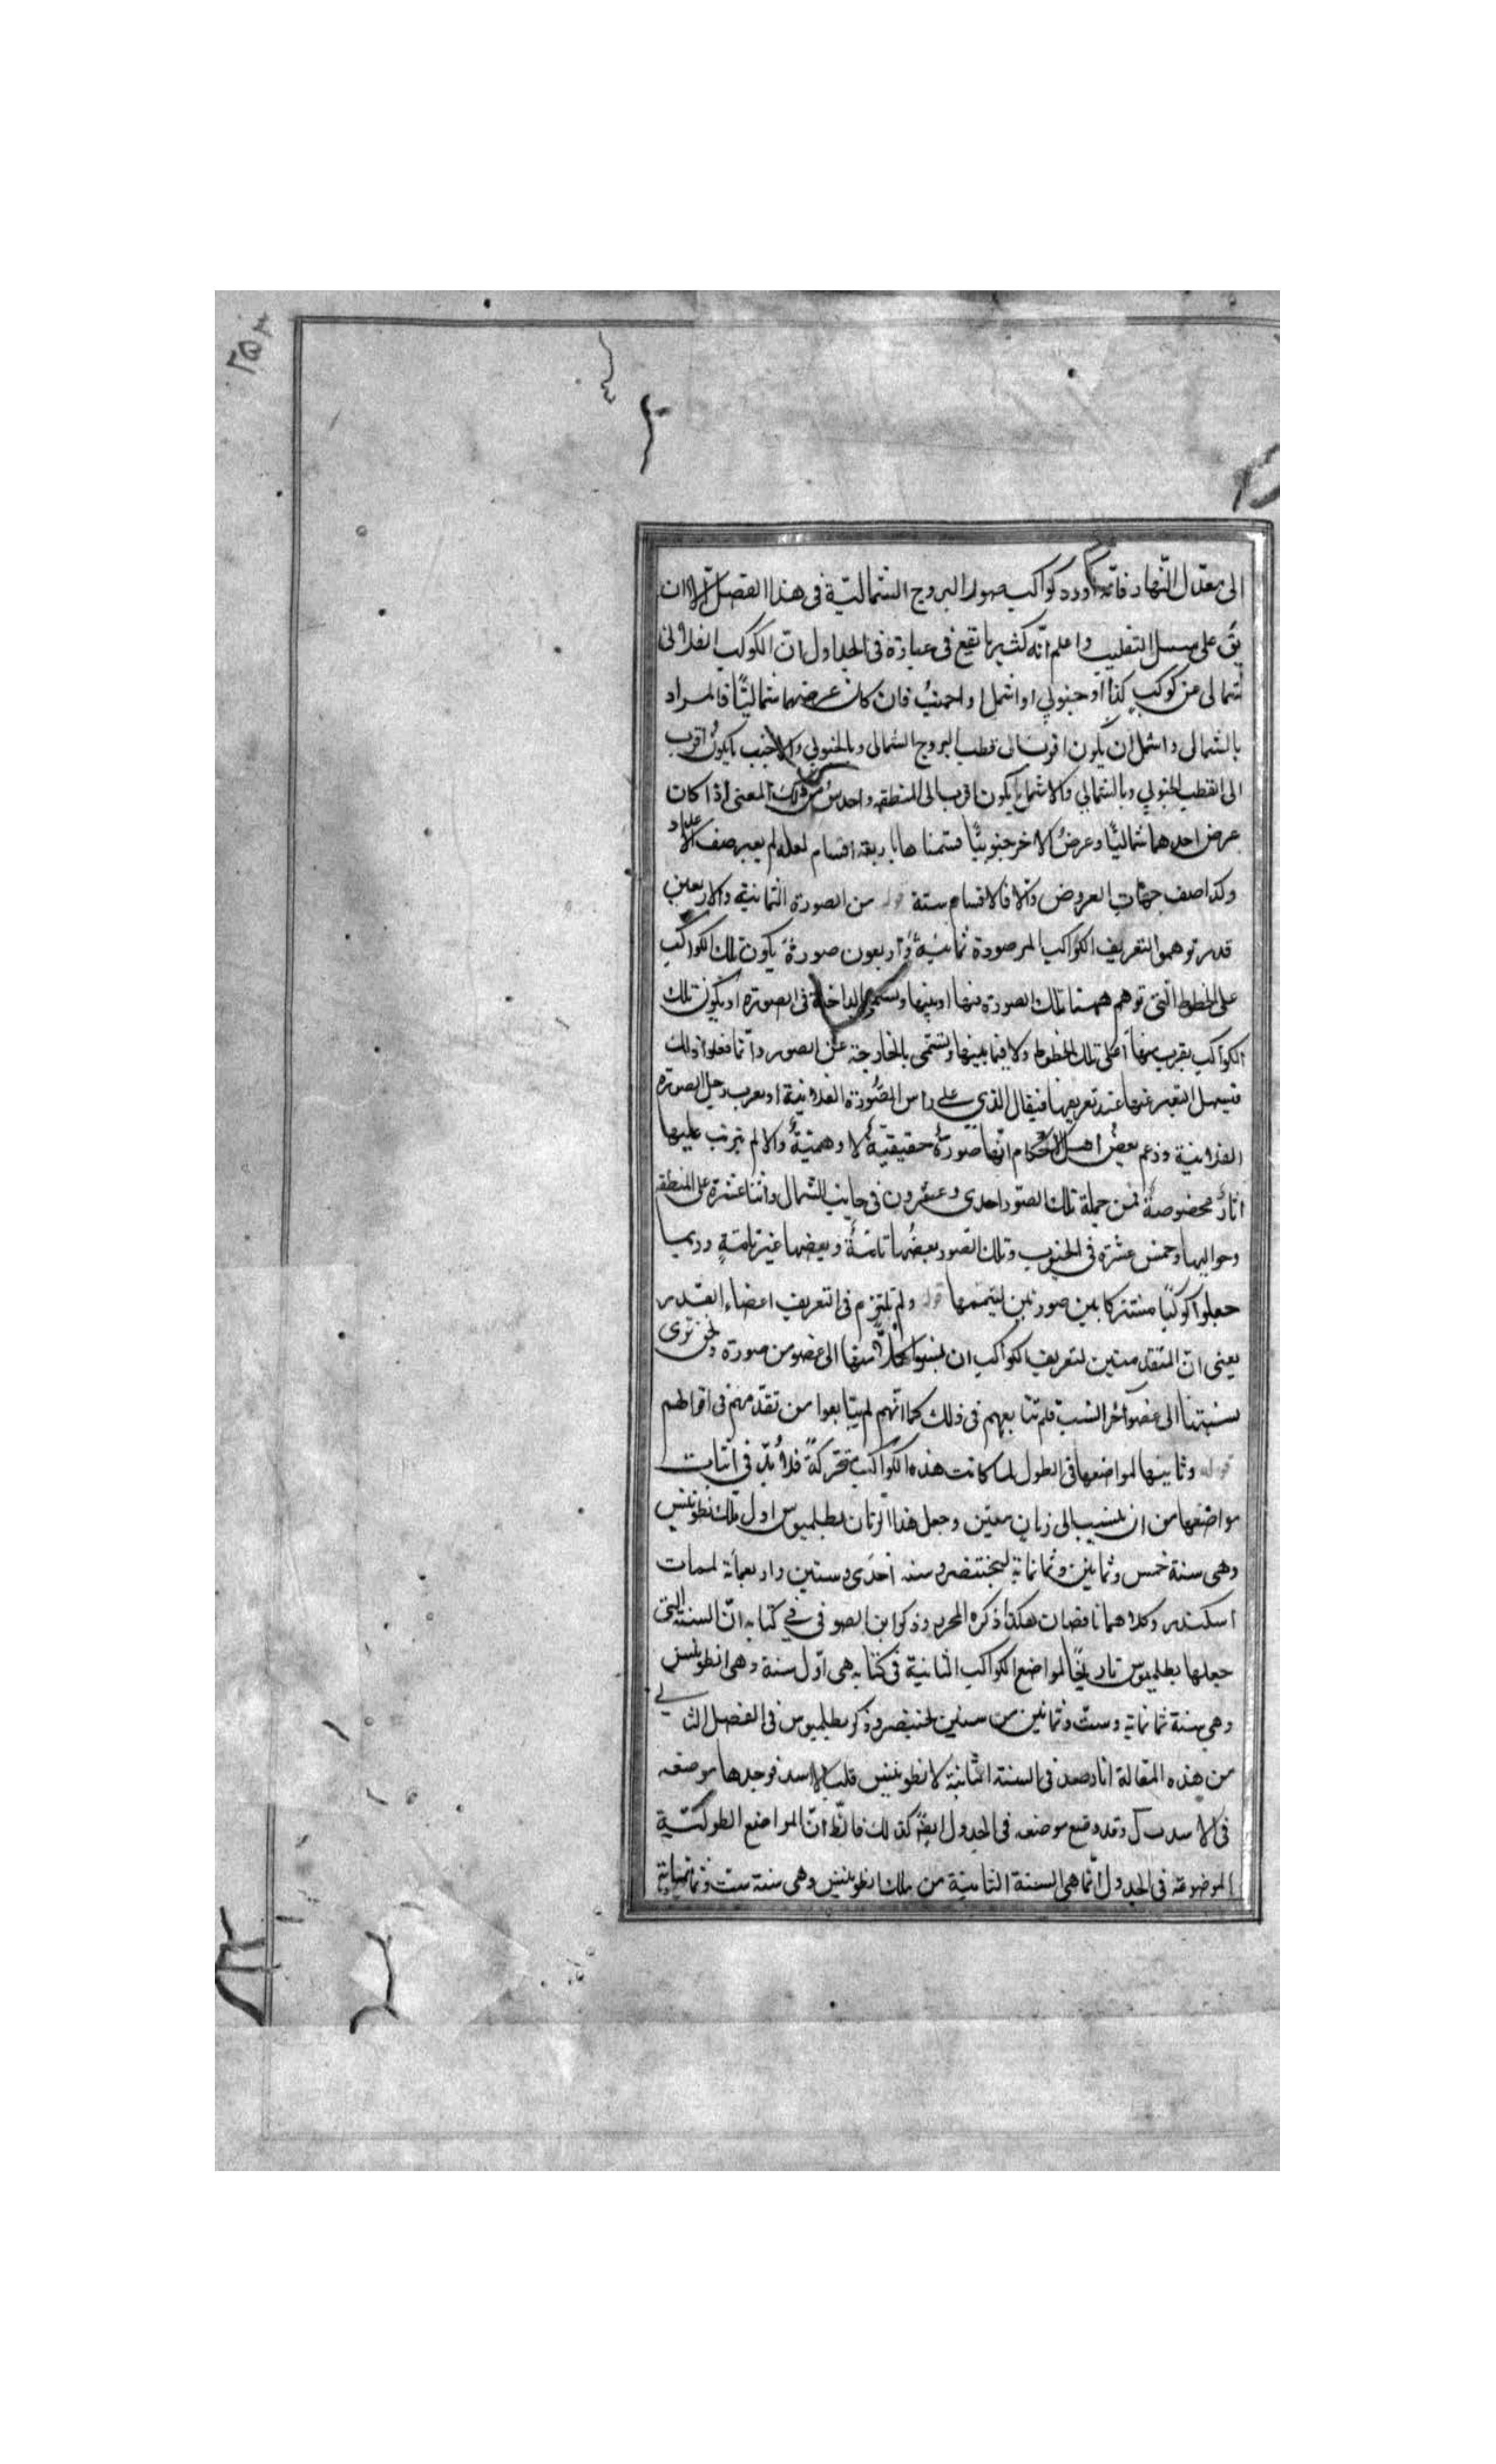 الى معدّل النّهار فانّه اورد كواكب صور البروج الشماليّة فى هذا الفصل الا ان
يق على سبيل التغليب واعلم انّه كثيرا ما تقع فى عبارة فى الجداول انّ الكوكب الفلانى
شمالى من كوكب كذا او جنوبي او اشمل او اجنب فان كان عرضهما شماليًّا فالمراد
بالشمالى واشمل ان يكون اقرب الى قطب البروج الشمالى وبالجنوبي والاجنب ما يكون اقرب
الى القطب الجنوبي وبالشمالي والاشمل ما يكون اقرب الى المنطقه واحدس من ذلك المعنى اذا كان
عرض احدهما شماليًّا وعرض الاخر جنوبيًّا قسمنا هابا ربعة اقسام لعله لم يعبر صنف
وكذا صنف جهات العروض والا فالاقسام ستة قوله من الصورة الثمانية والاربعين
قد توهموا التعريف الكواكب المرصودة ثمانيةً واربعون صورةً يكون تلك الكواكب
على الخطوط الّتى توهم تلك الصورة منها او بينها ويسمى الداخلة فى الصوره او يكون تلك
الكواكب بقرب منها لا على تلك الخطوط ولا فيما بينها وتسمّى بالخارجة عن الصور وانّما فعلوا ذلك
فيسهل التعبير عنها عند تعريفها فيقال الذي على راس الصّورة الفلانية او بقرب رجل الصوره
الفلانية وزعم بعض اهل الاحكام انّها صورةٌ حقيقيةٌ لا وهميةٌ والا لم يترتب عليها
اثارٌ مخصوصةٌ فمن جملة تلك الصّور احدى وعشرون فى جانب الشمال واثنا عشرة على المنطقه
وحواليها وخمس عشرة فى الجنوب وتلك الصور بعضها تامّةٌ وبعضها غير تامّةٍ وربما
جعلوا كوكبًا مشتركا بين صورتين ليتممها قوله ولم نلتزم فى التعريف اعضاء القدر
يعنى انّ المتقدمين لتعريف الكواكب ان نسبوا كلاًّ منها الى عضو من صورة ونحن نرى
نسبتها الى عضو آخر انسب فلم نتابعهم فى ذلك كما انّهم لم يتابعوا من تقدّم منهم فى اقوالهم
قوله وثانيها لمواضعها فى الطول لما كانت هذه الكواكب متحركةً فلا بُدّ فى اثبات
مواضعها من ان ينسب الى زمانٍ معيّن وجعل هذا الزمان بطلميوس اول ملك انطونينس
وهى سنة خمس وثمانين وثمانمائة لبختنصر وسنه احدى وستين واربعمائة لممات
اسكندر وكلاهما ناقصان هكذا ذكره المحرر وذكر ابن الصوفى في كتابه انّ السنة التى
جعلها بطلميوس تاريخًا لمواضع الكواكب الثابتة فى كتابه هى اوّل سنة وهى انطونينس
وهى سنة ثمانمائة وستّ وثمانين من سنين لبختنصر وذكر بطلميوس فى الفصل الثانى
من هذه المقالة انا رصد فى السنة الثانية لانطونينس قلب الاسد فوجدها موضعه
فى الاسد ب ل وقد وضع موضعه فى الجدول ايضًا كذلك فالظ انّ المواضع الطوليّة
الموضوعة فى الجدول انّما هى السنة الثانية من ملك انطونينس وهى سنة ستّ وثمانمائة